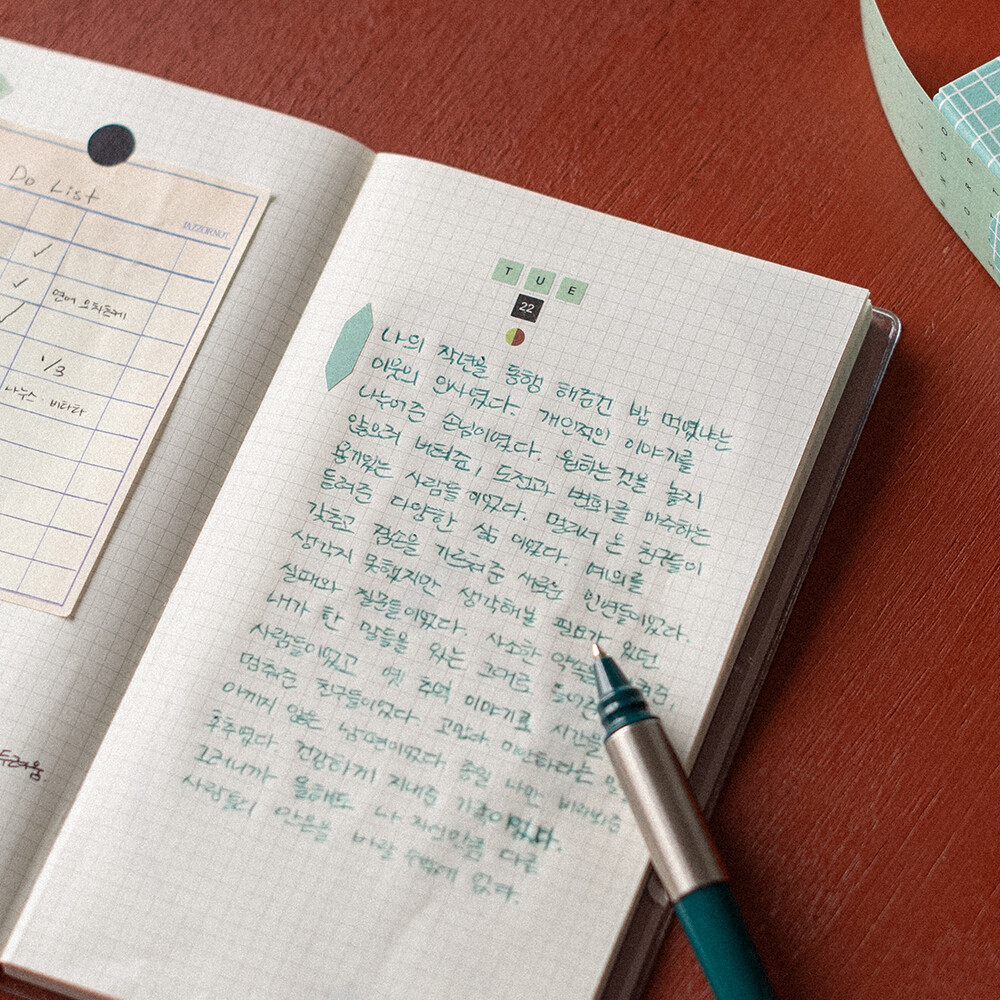 Do List
JAZZORNOT
연어 오차즈케
1/3
나누스 · 비타타
두려움
T U E
22
나의 작년을 동행 해준건 밥 먹었냐는
이웃의 인사였다. 개인적인 이야기를
나누어준 손님이었다. 원하는 것을 놓지
않으려 버텨줌, 도전과 변화를 마주하는
용기있는 사람들 이었다. 멀리서 온 친구들이
들려준 다양한 삶 이었다. 예의를
갖추고 겸손을 가르쳐준 새로운 인연들이었다.
생각지 못했지만 생각해볼 필요가 있던
실패와 질문들이었다. 사소한 약속을
내가 한 말들을 있는 그대로 들어준
사람들이었고 옛 추억 이야기로 시간을
멈춰준 친구들이었다 고맙다 미안하다는 말
아끼지 않은 남편이었다 종일 나만 바라봐준
후추였다. 건강하게 지내준 가족이었다.
그러니까 올해도 나 자신만큼 다른
사람들의 안온을 바랄 수밖에 없다.